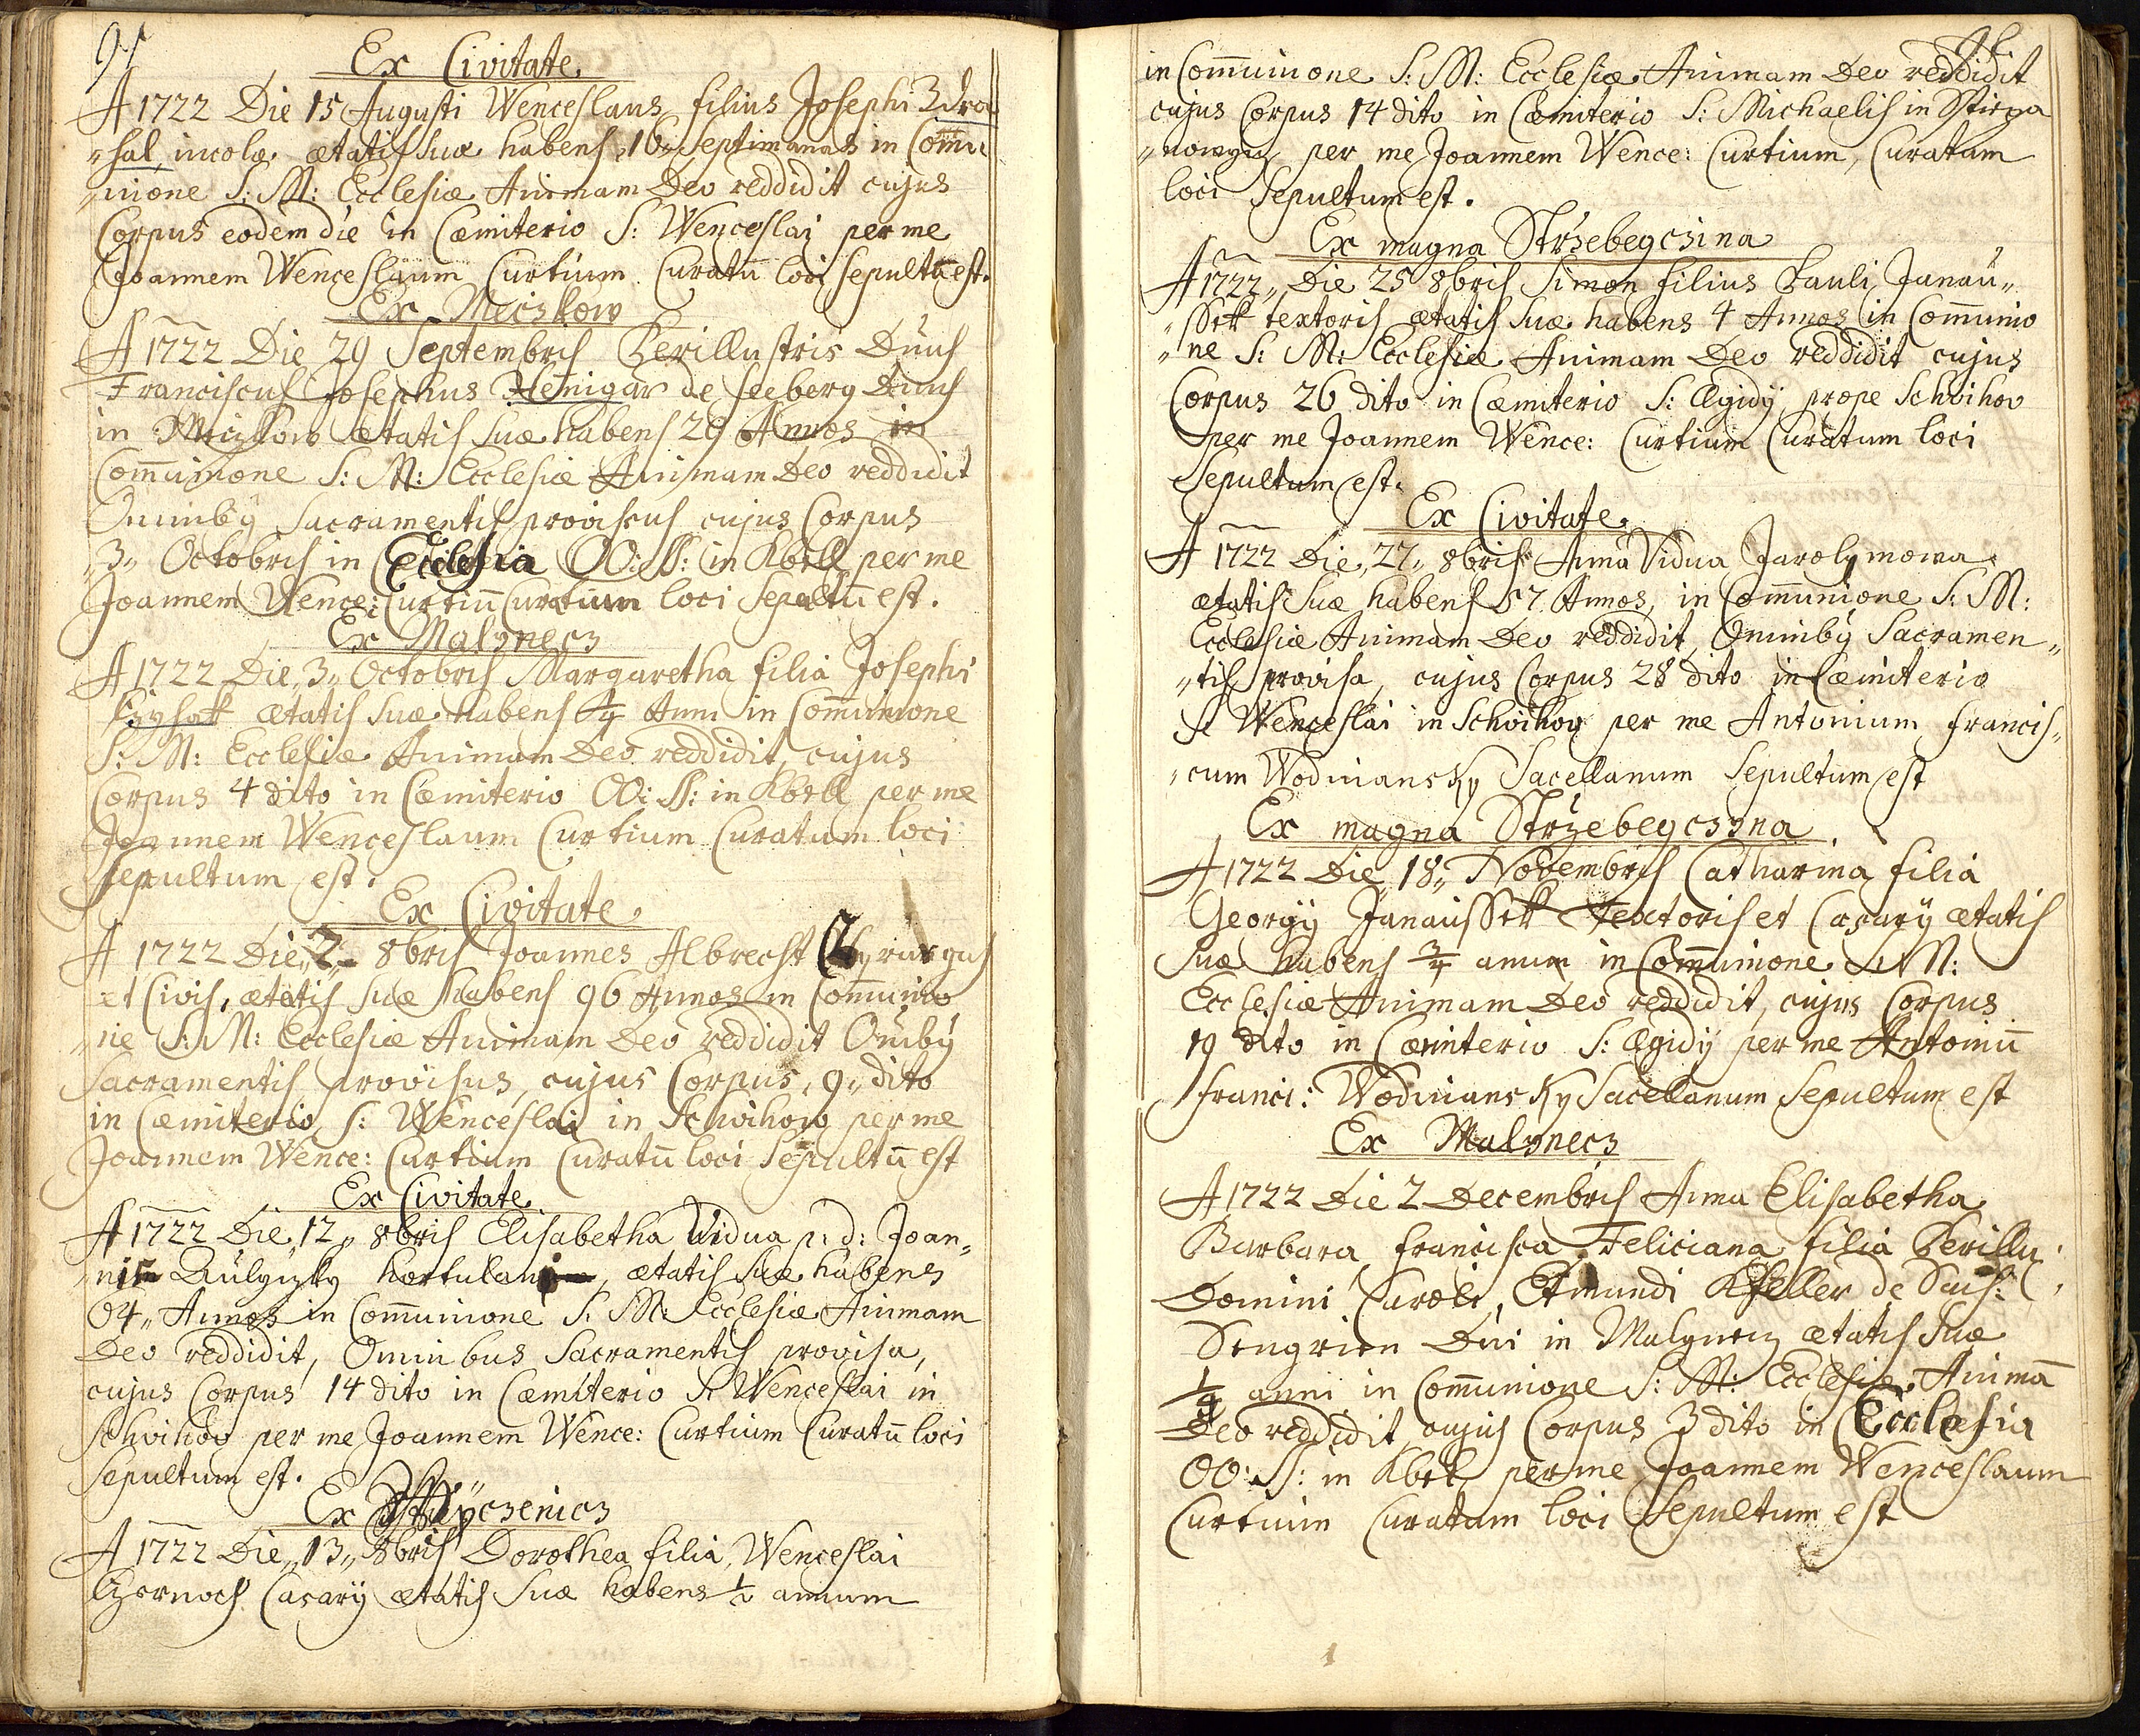 91
Ex Civitate
A 1722 Die 15 Augusti Wenceslaus filius Josephi Zdra
„hal incolæ ætatis suæ habens „16„ Septimanas in Commu
„nione S: M: Ecclesiæ Animam Deo reddidit cujus
Corpus eodem die in Cæmiterio S: Wenceslai per me
Joannem Wenceslaum Curtium Curatū loci sepultū est.
Ex Mecskow
A 1722 Die 29 Septembris Perillustris Dnus
Franciscus Josephus Henigar de Seeberg Dnus
in Meczkow ætatis suæ habens 29 Annos in
Communione S: M: Ecclesiæ Animam Deo reddidit
Omnibȳ Sacramentis provisus cujus Corpus
„3„ Octobris in Ecclesia OO: SS: in Kbell per me
Joannem Wence: Curtiū Curatum loci Sepultū est.
Ex Malynecz
A 1722 Die „3„ Octobris Margaretha filia Josephi
ætatis suæ habens Anni in Communione
S: M: Ecclesiæ Animam Deo reddidit, cujus
Corpus 4 dito in Cæmiterio OO: SS: in Kbell per me
Joannem Wenceslaum Curtium Curatum loci
sepultum est.
Ex Civitate
A 1722 Die „7„ 8bris Joannes Albrecht Chyrurgus
et Civis, ætatis suæ habens 96 Annos in Communio
„ne S: M: Ecclesiæ Animam Deo reddidit Omībȳ
Sacramentis provisus, cujus Corpus „9„ dito
in Cæmiterio S: Wenceslai in Schvihow per me
Joannem Wence: Curtium Curatū loci Sepultū est
Ex Civitate
A 1722 Die „12„ 8bris Elisabetha Vidua p: d: Joan„
„nis hortulani, ætatis suæ habens
64„ Annos in Communione S: M: Ecclesiæ Animam
Deo reddidit, Omnibus Sacramentis provisa,
cujus Corpus 14 dito in Cæmiterio S: Wenceslai in
Schvihov per me Joannem Wence: Curtium Curatū loci
sepultum est.
Ex
A 1722 Die „13„ 8bris Dorothea filia Wenceslai
Czernoch Casarÿ ætatis suæ habens ½ annum
in Communione S: M: Ecclesiæ Animam Deo reddidit
cujus Corpus 14 dito in Cæmiterio S: Michaelis in Stirza
„nowycz per me Joannem Wence: Curtium, Curatum
loci Sepultum est.
Ex magna Strzebegczina
A 1722„ Die 25 8bris Simon filius Pauli Janau„
„ssek textoris ætatis suæ habens 4 Annos in Communio
„ne S: M: Ecclesiæ Animam Deo reddidit cujus
Corpus 26 dito in Cæmiterio S: Ægidÿ prope Schvihov
per me Joannem Wence: Curtium Curatum loci
Sepultum est.
Ex Civitate
A 1722 Die „27„ 8bris Anna Vidua Jarolymowa
ætatis suæ habens 57 Annos, in Communione S: M:
Ecclesiæ Animam Deo reddidit, Omnibȳ Sacramen„
„tis provisa, cujus Corpus 28 dito in Cæmiterio
S: Wenceslai in Schvihov per me Antonium Francis„
„cum Wodniansky Sacellanum Sepultum est
Ex magna Strzebegczina
A 1722 Die „18„ Novembris Catharina filia
Georgÿ Janaussek Textoris et Casarÿ ætatis
suæ habens ¾ anum in Communione S: M:
Ecclesiæ Animam Deo reddidit, cujus Corpus
19 dito in Cæmiterio S: Ægidÿ per me Antoniū
Franci: Wodniansky Sacellanum Sepultum est
Ex Malynecz
A 1722 Die 2 Decembris Anna Elisabetha
Barbara Francisca Feliciana filia Perillu:
Domini Caroli, Etmundi Kfeller de
Sengrien Dni in Malynecz ætatis suæ
anni in Communione S: M: Ecclesiæ Animā
Deo reddidit cujus Corpus 3 dito in Ecclesia
OO: SS: in Kbel per me Joannem Wenceslaum
Curtium Curatum loci Sepultum est